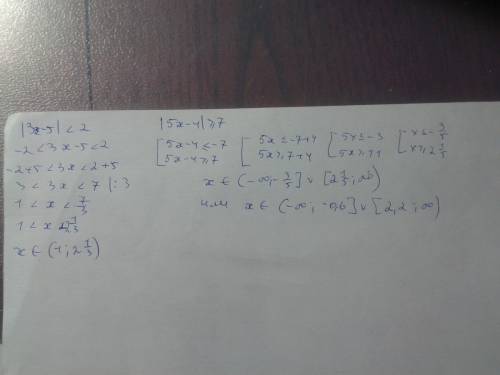 |3x-5| < 2
-2 < 3x-5 < 2
-2+5 < 3x < 2+5
3 < 3x < 7 |:3
1 < x < 7/3
1 < x < 2 1/3
x ∈ (1; 2 1/3)
|5x-4| ≥ 7
[5x-4 ≤ -7 [5x ≤ -7+4 [5x ≤ -3 [x ≤ -3/5
5x-4 ≥ 7 5x ≥ 7+4 5x ≥ 11 x ≥ 2 1/5
x ∈ (-∞; -3/5] ∪ [2 1/5; ∞)
или x ∈ (-∞; -0,6] ∪ [2,2; ∞)